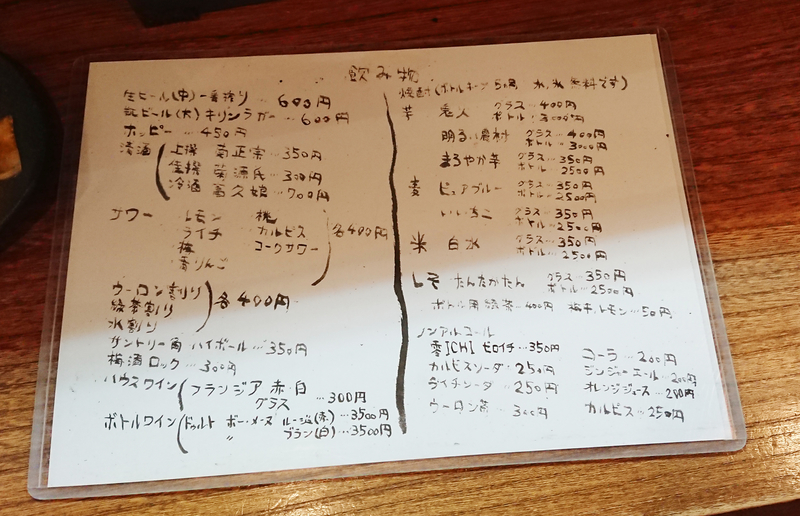 飲み物
生ビール(中)一番搾り … 600円
瓶ビール(大)キリンラガー … 600円
ホッピー … 450円
清酒 上撰 菊正宗 … 350円
金撰 菊源氏 … 300円
冷酒 喜久娘 … 700円
サワー レモン 桃
ライチ カルピス 各400円
梅 コークサワー
青りんご
ウーロン割り
緑茶割り 各400円
水割り
サントリー角ハイボール … 350円
梅酒ロック … 300円
ハウスワイン フランジア 赤・白
グラス … 300円
ボトルワイン ドゥルト ボー・メーヌ ルージュ(赤) … 3500円
〃 ブラン(白) … 3500円
焼酎(ボトルキープ 水,氷 無料です)
芋 グラス … 400円
ボトル
明るい農村 グラス … 400円
ボトル … 3000円
まろやか芋 グラス … 350円
ボトル 2500円
麦 ピュアブルー グラス … 350円
ボトル … 2500円
いいちこ グラス … 350円
ボトル … 2500円
米 白水 グラス … 350円
ボトル … 2500円
しそ たんたかたん グラス … 350円
ボトル … 2500円
ボトル用緑茶 … 400円 梅干,レモン … 50円
ノンアルコール
零ICHI ゼロイチ … 350円 コーラ … 200円
カルピスソーダ 250円 ジンジャーエール … 200円
ライチソーダ 250円 オレンジジュース … 200円
ウーロン茶 … 300円 カルピス … 250円